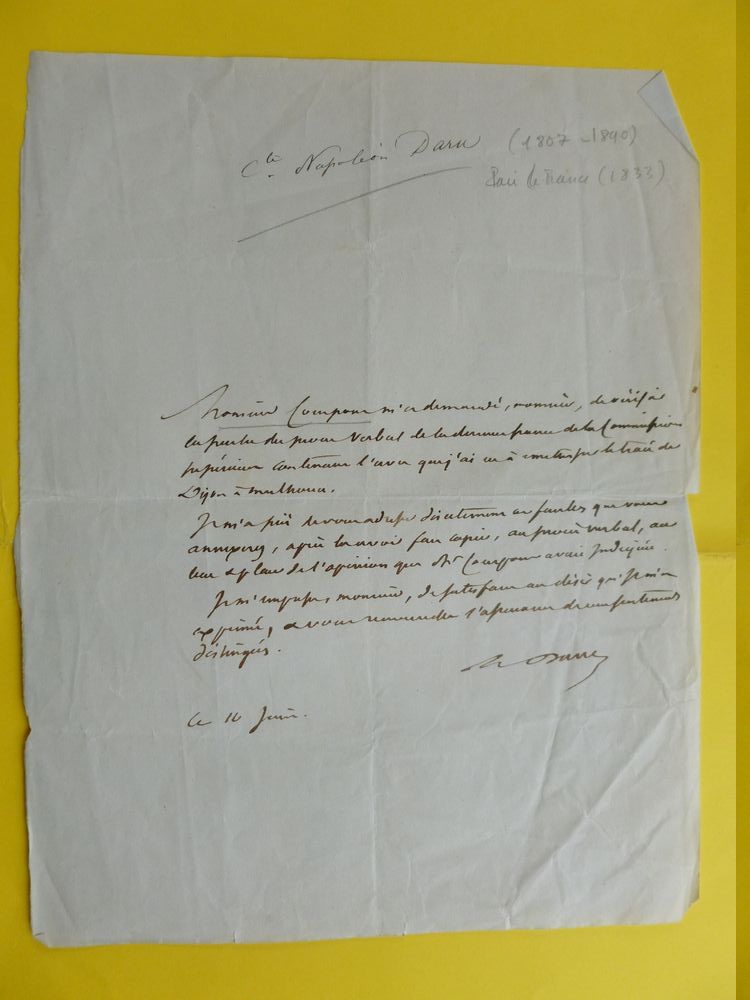 Cte Napoléon Daru (1807-1890)
Pair de France (1833)
Monsieur m'a demandé, monsieur, de
du procès verbal de la dernière séance de la Commission
supérieure contenant l'avis que j'ai à sur le tracé de
Dijon à mulhouse.
Il m'a prié de vous directement ce feuillet que vous
annexerez, après l'avoir fait copier, au procès verbal, au
lieu & place de l'opinion que Mr avait indiquée.
Je m'empresse, monsieur, de satisfaire au désir qu'il m'a
exprimé, & vous l'assurance de mes sentiments
distingués.
Daru
ce 16 Juin.